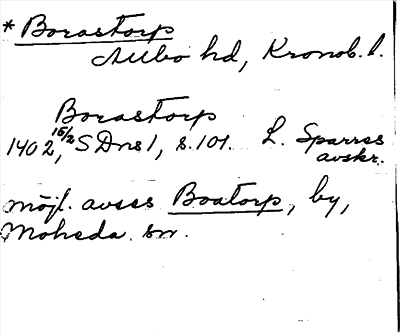 * Borastorp
Allbo hd, Kronob. l.
Borastorp
1402 15/2, SDns 1, s. 101. L. Sparres
avskr.
möjl. avses Boatorp, by,
Moheda sn.